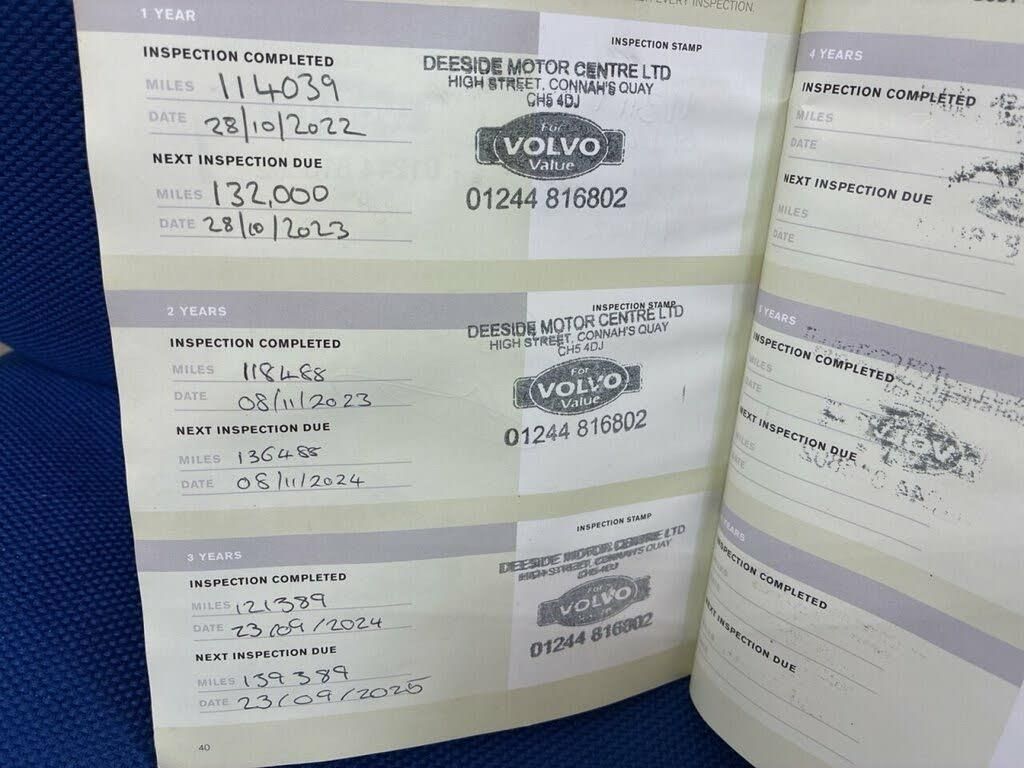 EVERY INSPECTION.
1 YEAR
INSPECTION COMPLETED
MILES 114039
DATE 28/10/2022
NEXT INSPECTION DUE
MILES 132,000
DATE 28/10/2023
INSPECTION STAMP
DEESIDE MOTOR CENTRE LTD
HIGH STREET, CONNAH'S QUAY
CH5 4DJ
For
VOLVO
Value
01244 816802
2 YEARS
INSPECTION COMPLETED
MILES 118488
DATE 08/11/2023
NEXT INSPECTION DUE
MILES 136488
DATE 08/11/2024
INSPECTION STAMP
DEESIDE MOTOR CENTRE LTD
HIGH STREET, CONNAH'S QUAY
CH5 4DJ
For
VOLVO
Value
01244 816802
3 YEARS
INSPECTION COMPLETED
MILES 121389
DATE 23/09/2024
NEXT INSPECTION DUE
MILES 139389
DATE 23/09/2025
INSPECTION STAMP
DEESIDE MOTOR CENTRE LTD
HIGH STREET, CONNAH'S QUAY
CH5 4DJ
For
VOLVO
01244 816802
40
4 YEARS
INSPECTION COMPLETED
MILES
DATE
NEXT INSPECTION DUE
MILES
DATE
YEARS
INSPECTION COMPLETED
MILES
DATE
NEXT INSPECTION DUE
MILES
DATE
YEARS
INSPECTION COMPLETED
NEXT INSPECTION DUE